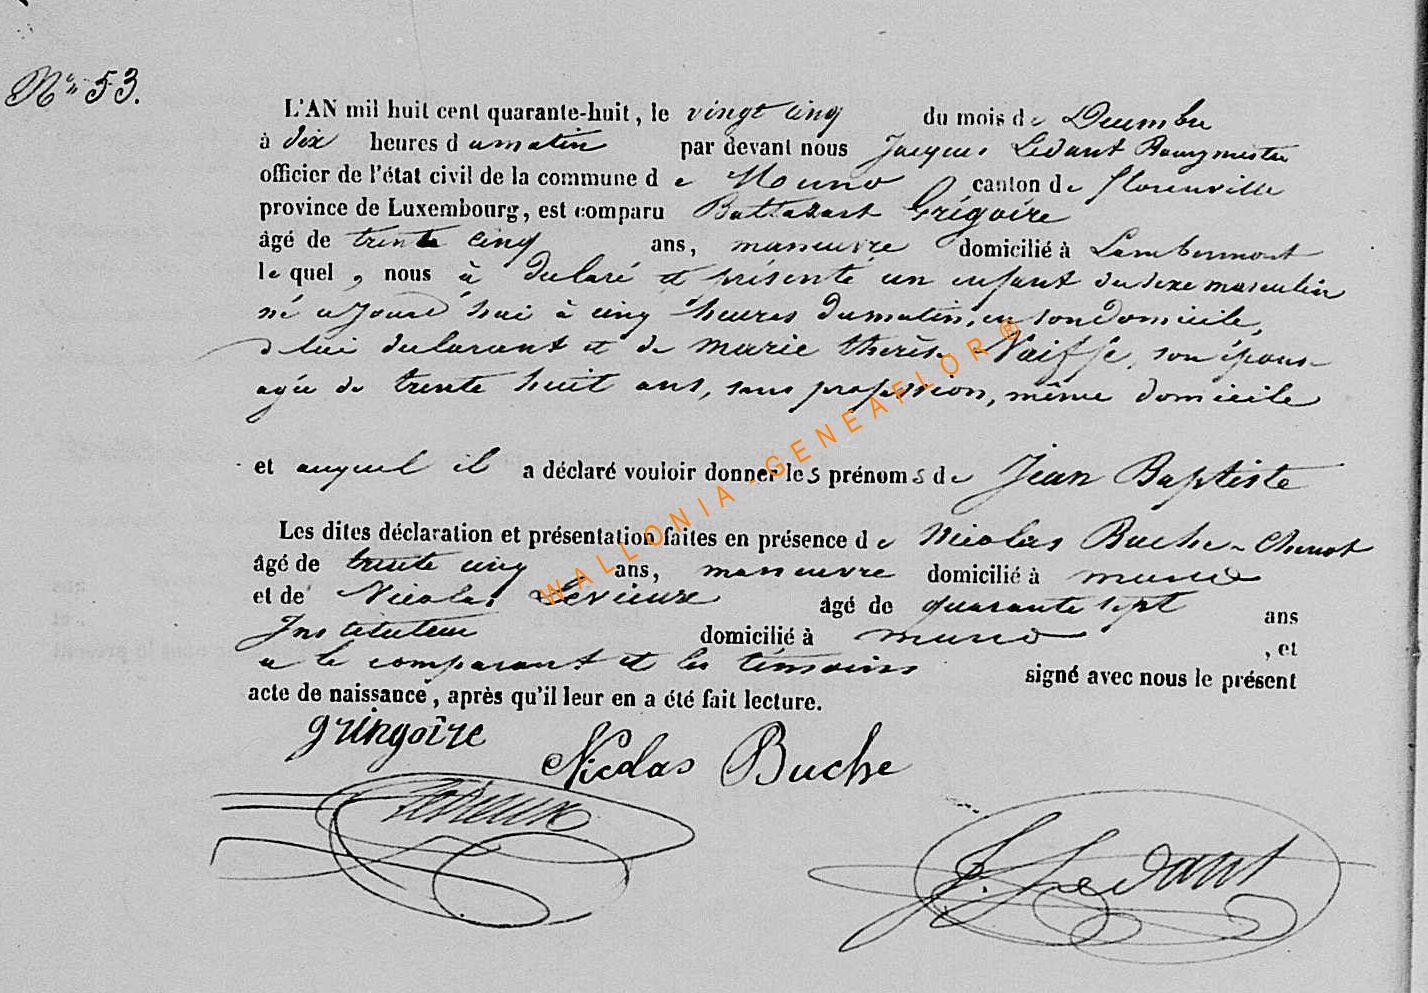 N° 53.
L'AN mil huit cent quarante-huit, le vingt cinq du mois de Decembre
à dix heures d umatin par devant nous Jacques Ledant Bourgmestre
officier de l'état civil de la commune d e Muno canton de florenville
province de Luxembourg, est comparu Baltazart Grégoire
âgé de trente cinq ans, manœuvre domicilié à Lambermont
le quel, nous à declaré et présenté un enfant du sexe masculin
né aujourd'hui à cinq heures dumatin, en son domicile,
de lui declarant et de marie thérèse Naiffe, son épouse
agée de trente huit ans, sans profession, même domicile
et auquel il a déclaré vouloir donner les prénoms de Jean Baptiste
Les dites déclaration et présentation faites en présence de Nicolas Buche-Chenot
âgé de trente cinq ans, manœuvre domicilié à muno
et de Nicolas Levieux âgé de quarante sept ans
Instituteur domicilié à muno, et
a le comparant et les témoins signé avec nous le présent
acte de naissance, après qu'il leur en a été fait lecture.
gringoire
Nicolas Buche
Levieux
J. Ledant
WALLONIA-GENEAFLOR®